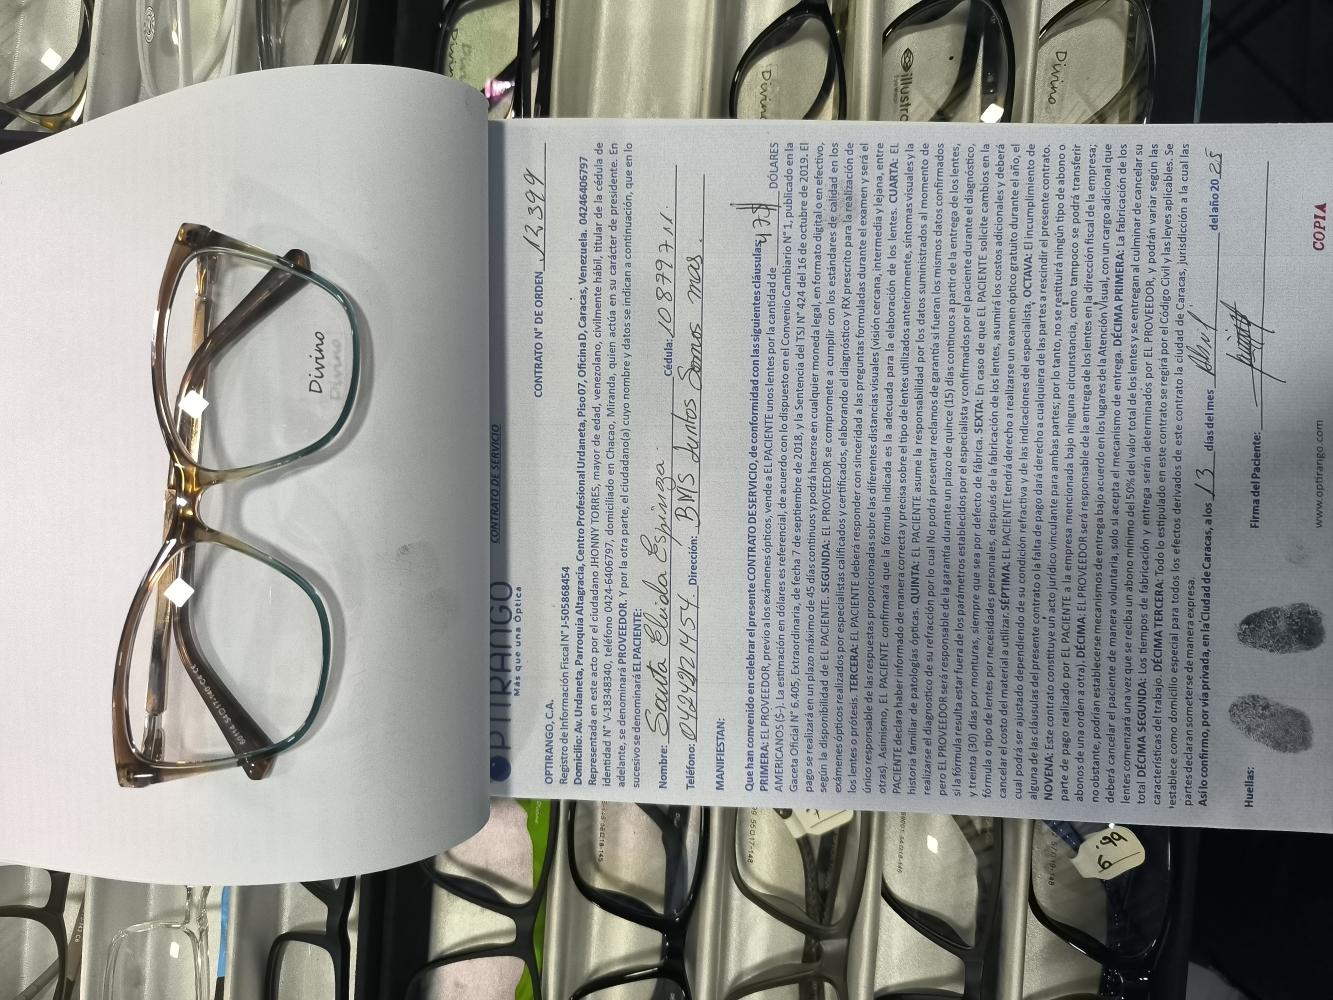 OPTIRANGO
Más que una Óptica
CONTRATO DE SERVICIO
OPTIRANGO, C.A.
CONTRATO N° DE ORDEN 13399
Registro de Información Fiscal N° J-505868454
Domicilio: Av. Urdaneta, Parroquia Altagracia, Centro Profesional Urdaneta, Piso 07, Oficina D, Caracas, Venezuela. 04246406797
Representada en este acto por el ciudadano JHONNY TORRES, mayor de edad, venezolano, civilmente hábil, titular de la cédula de
identidad N° V-18348340, teléfono 0424-6406797, domiciliado en Chacao, Miranda, quien actúa en su carácter de presidente. En
adelante, se denominará PROVEEDOR. Y por la otra parte, el ciudadano(a) cuyo nombre y datos se indican a continuación, que en lo
sucesivo se denominará EL PACIENTE:
Nombre: Elida Espinoza Cédula: 10879711.
Teléfono: 04242421454 Dirección: BMS Juntos Somos mas.
MANIFIESTAN:
Que han convenido en celebrar el presente CONTRATO DE SERVICIO, de conformidad con las siguientes cláusulas:
PRIMERA: El PROVEEDOR, previo a los exámenes ópticos, vende a EL PACIENTE unos lentes por la cantidad de 47$ DÓLARES
AMERICANOS ($-). La estimación en dólares es referencial, de acuerdo con lo dispuesto en el Convenio Cambiario N° 1, publicado en la
Gaceta Oficial N° 6.405, Extraordinaria, de fecha 7 de septiembre de 2018, y la Sentencia del TSJ N° 424 del 16 de octubre de 2019. El
pago se realizará en un plazo máximo de 45 días continuos y podrá hacerse en cualquier moneda legal, en formato digital o en efectivo,
según la disponibilidad de EL PACIENTE. SEGUNDA: EL PROVEEDOR se compromete a cumplir con los estándares de calidad en los
exámenes ópticos realizados por especialistas calificados y certificados, elaborando el diagnóstico y RX prescrito para la realización de
los lentes o prótesis. TERCERA: EL PACIENTE deberá responder con sinceridad a las preguntas formuladas durante el examen y será el
único responsable de las respuestas proporcionadas sobre las diferentes distancias visuales (visión cercana, intermedia y lejana, entre
otras). Asimismo, EL PACIENTE confirmará que la fórmula indicada es la adecuada para la elaboración de los lentes. CUARTA: EL
PACIENTE declara haber informado de manera correcta y precisa sobre el tipo de lentes utilizados anteriormente, síntomas visuales y la
historia familiar de patologías ópticas. QUINTA: EL PACIENTE asume la responsabilidad por los datos suministrados al momento de
realizarse el diagnóstico de su refracción por lo cual No podrá presentar reclamos de garantía si fueran los mismos datos confirmados
pero EL PROVEEDOR será responsable de la garantía durante un plazo de quince (15) días continuos a partir de la entrega de los lentes,
si la fórmula resulta estar fuera de los parámetros establecidos por el especialista y confirmados por el paciente durante el diagnóstico,
y treinta (30) días por monturas, siempre que sea por defecto de fábrica. SEXTA: En caso de que EL PACIENTE solicite cambios en la
fórmula o tipo de lentes por necesidades personales, después de la fabricación de los lentes, asumirá los costos adicionales y deberá
cancelar el costo del material a utilizar. SÉPTIMA: EL PACIENTE tendrá derecho a realizarse un examen óptico gratuito durante el año, el
cual podrá ser ajustado dependiendo de su condición refractiva y de las indicaciones del especialista. OCTAVA: El incumplimiento de
alguna de las cláusulas del presente contrato o la falta de pago dará derecho a cualquiera de las partes a rescindir el presente contrato.
NOVENA: Este contrato constituye un acto jurídico vinculante para ambas partes; por lo tanto, no se restituirá ningún tipo de abono o
parte de pago realizado por EL PACIENTE a la empresa mencionada bajo ninguna circunstancia, como tampoco se podrá transferir
abonos de una orden a otra). DÉCIMA: EL PROVEEDOR será responsable de la entrega de los lentes en la dirección fiscal de la empresa;
no obstante, podrían establecerse mecanismos de entrega bajo acuerdo en los lugares de la Atención Visual, con un cargo adicional que
deberá cancelar el paciente de manera voluntaria, solo si acepta el mecanismo de entrega. DÉCIMA PRIMERA: La fabricación de los
lentes comenzará una vez que se reciba un abono mínimo del 50% del valor total de los lentes y se entregan al culminar de cancelar su
total DÉCIMA SEGUNDA: Los tiempos de fabricación y entrega serán determinados por EL PROVEEDOR, y podrán variar según las
características del trabajo. DÉCIMA TERCERA: Todo lo estipulado en este contrato se regirá por el Código Civil y las leyes aplicables. Se
establece como domicilio especial para todos los efectos derivados de este contrato la ciudad de Caracas, jurisdicción a la cual las
partes declaran someterse de manera expresa.
Así lo confirmo, por vía privada, en la Ciudad de Caracas, a los 13 días del mes Abril del año 2025
Huellas:
Firma del Paciente:
www.optirango.com
COPIA
Divino
Divino
Divino
illustro
Divino